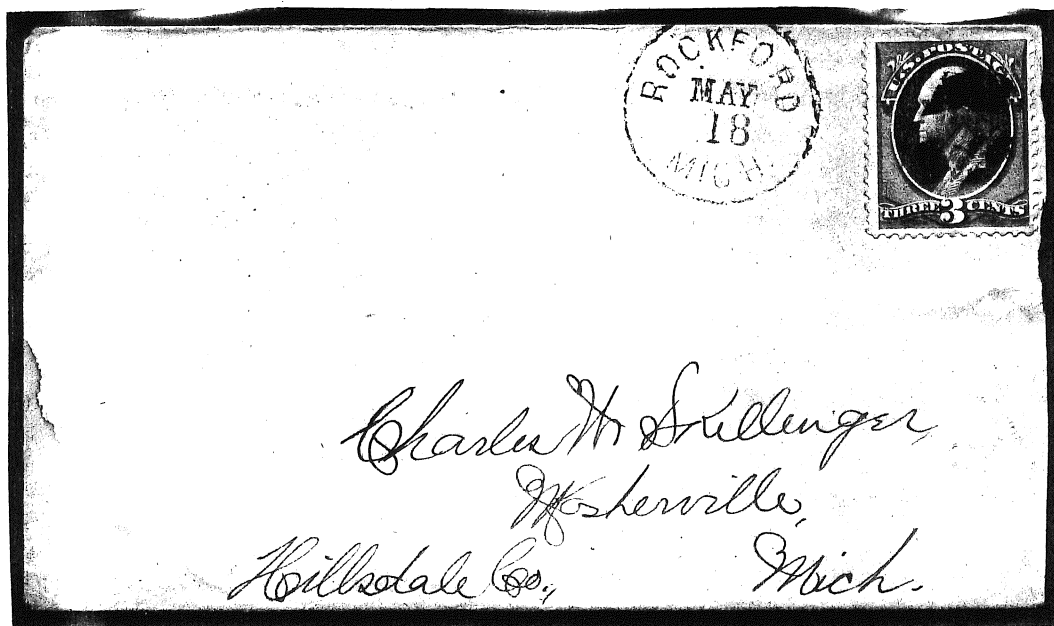 ROCKFORD
MAY
18
MICH.
U.S. POSTAGE
THREE 3 CENTS
Charles W Skillenger,
Mosherville,
Hillsdale Co., Mich.